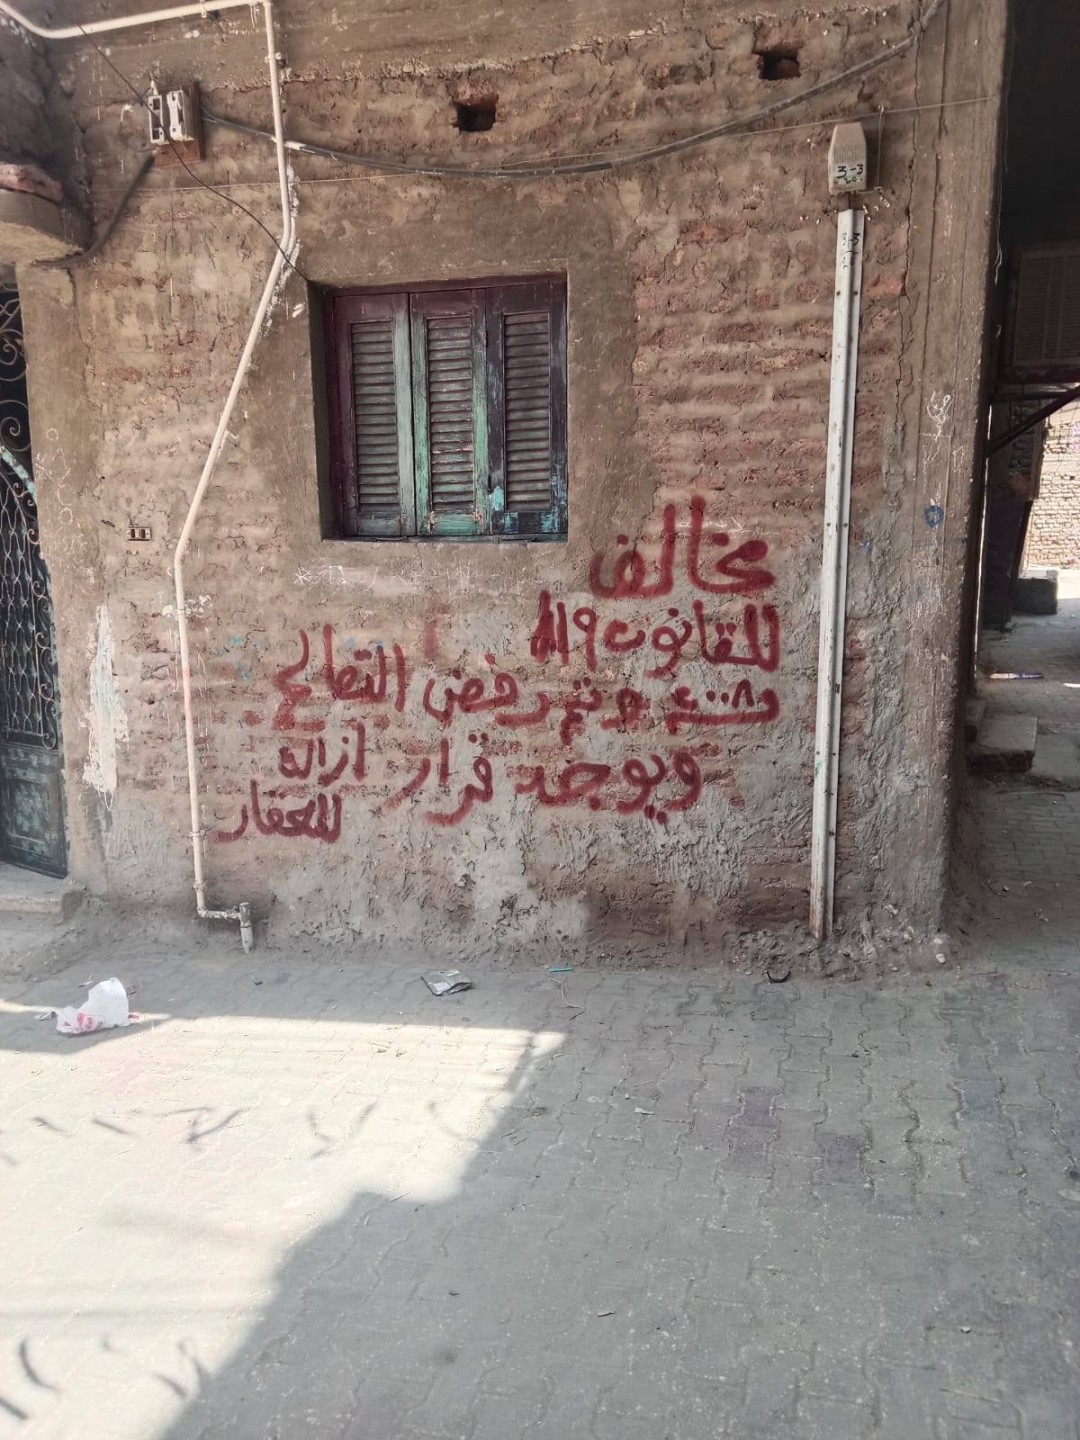 3-3
3-3
مخالف
للقانون ١١٩
لسنة ٢٠٠٨ وتم رفض التصالح
ويوجد قرار ازالة
للعقار